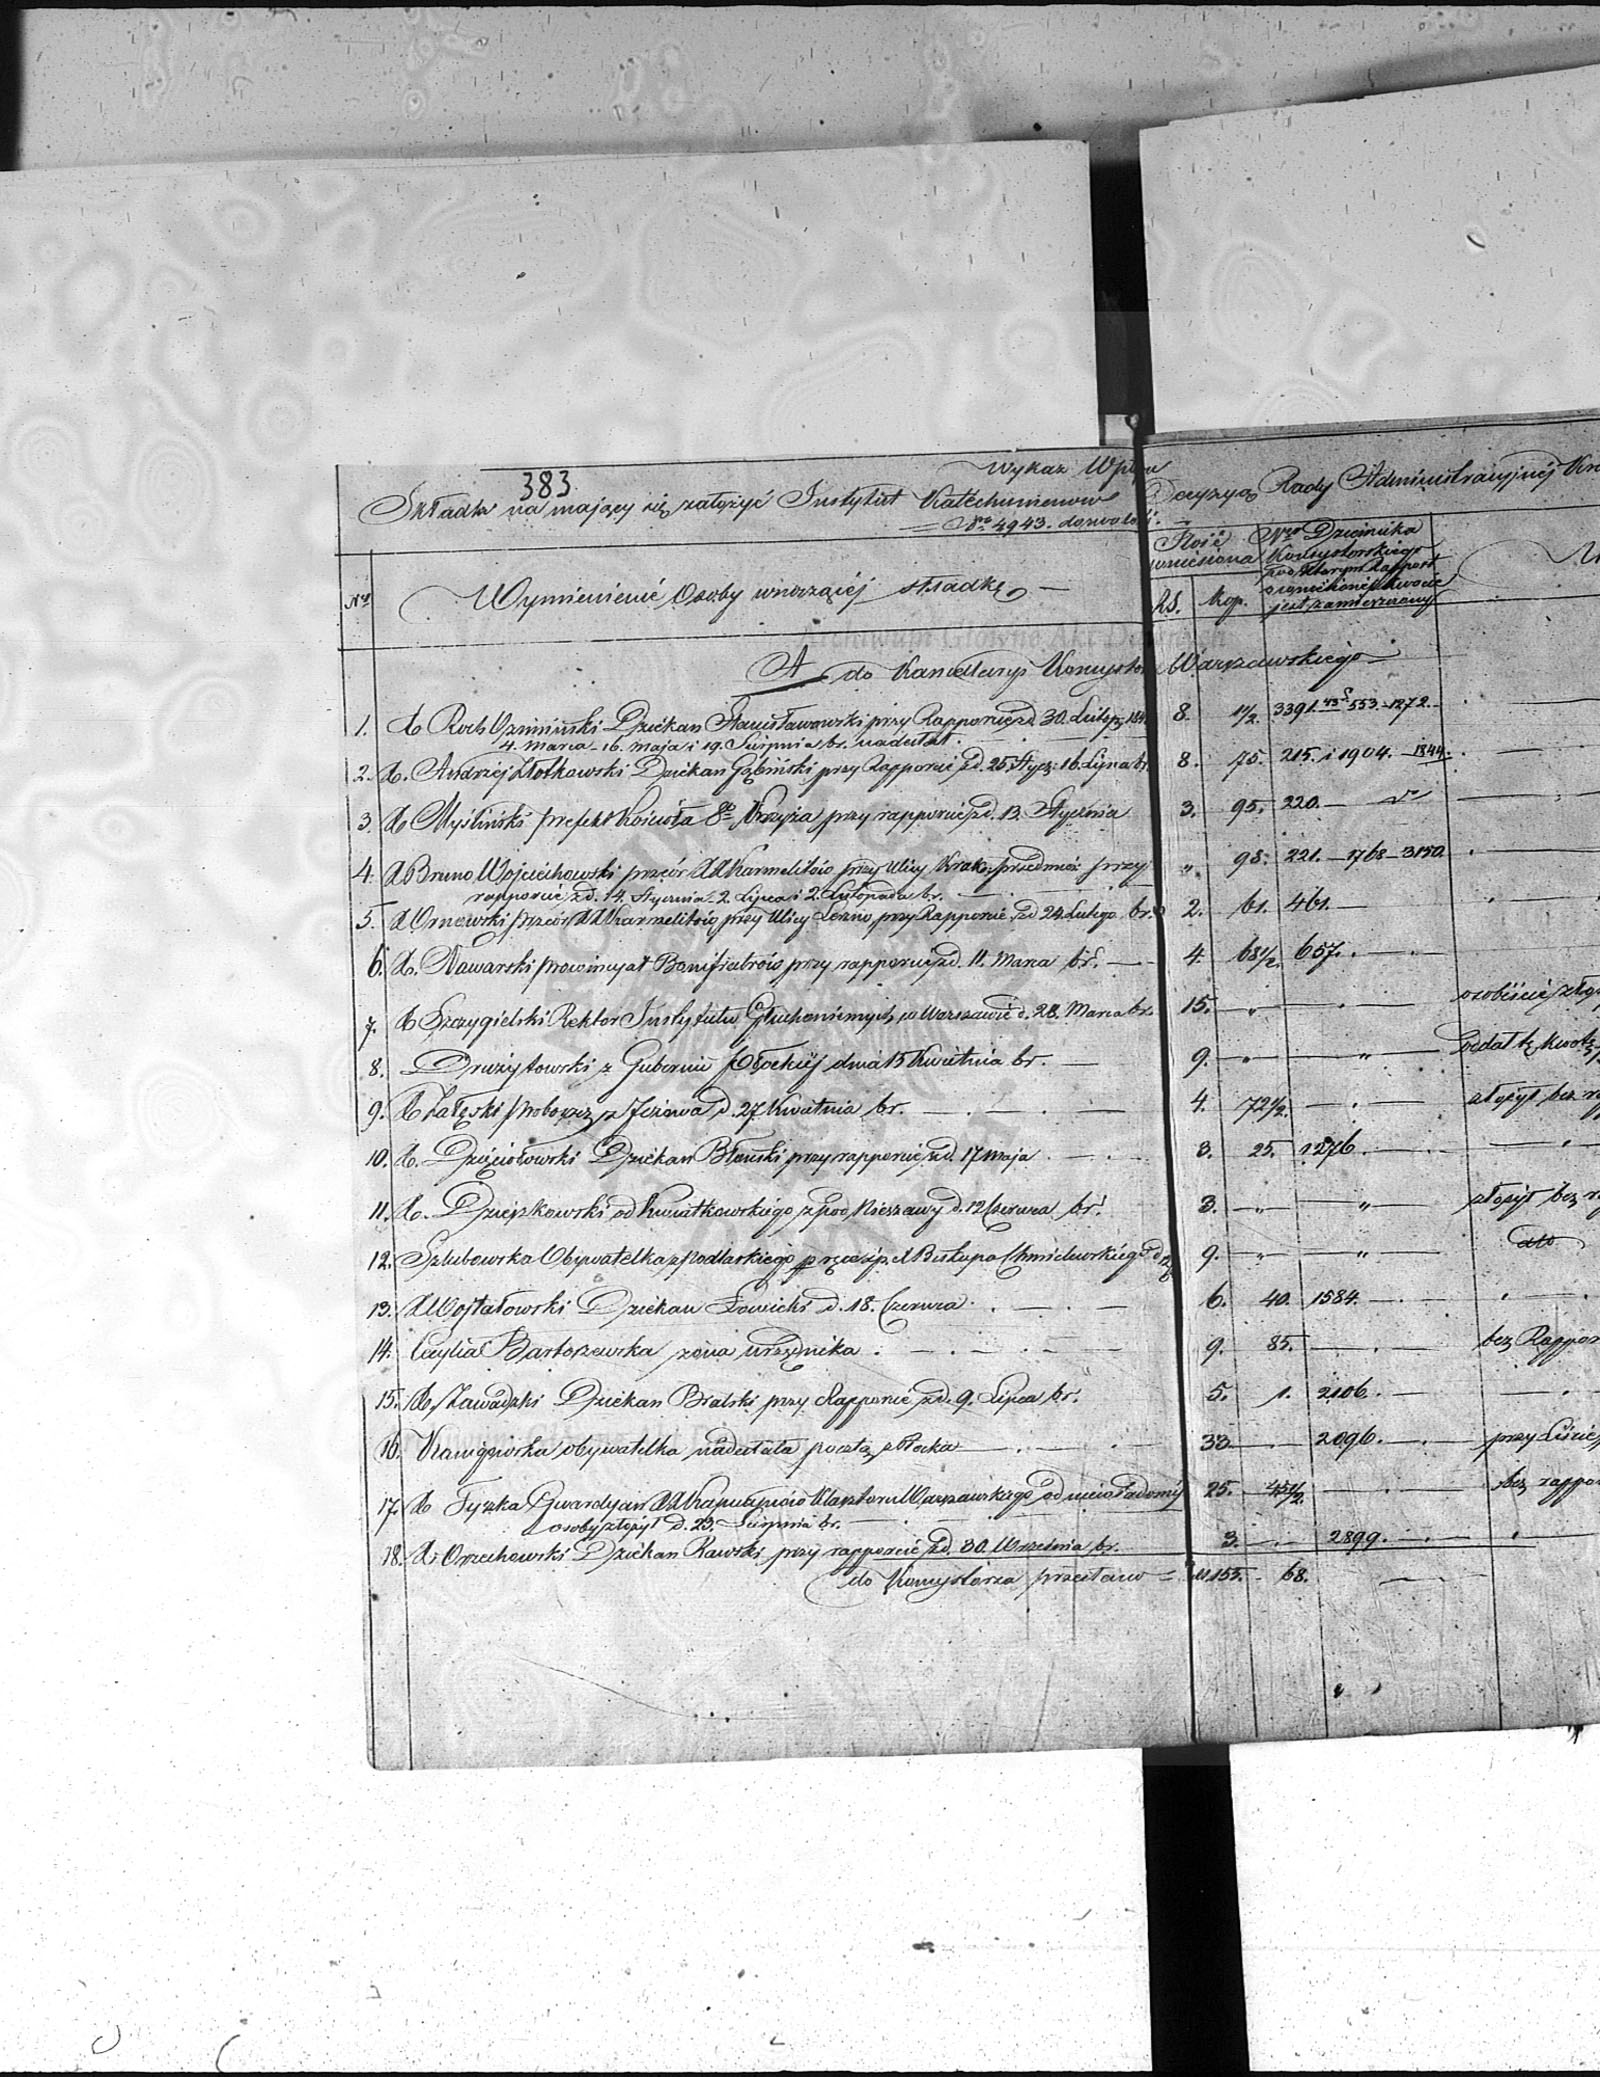 383
Wykaz Wpływu
Składek na mający się założyć Instytut Katechumenów Decyzyą Rady Administracyjnéj
Nro 4943. dozwoloń.
Nro Wymienienié Osoby wnoszącéj składkę Ilość wniesiona Rs. Kop. Nro Dziennika Konsystorskiego pod którym Rapport o wniesionéj kwocie jest zamieszczony
A do Kancellaryi Konsystorza Warszawskiego
1. X Roch Dziékan Stanisławowski przy Rapporcie zd. 30. Lutego 8. 1½. 3391. 43 r 553. 1272.
4. Marca - 16. Maja i 19. Sierpnia br. nadesłał.
2. X. Andrzej Złotkowski Dziékan Gąbiński przy Rapporcié zd. 25 Stycz: 16. Lipca br. 8. 75. 215. i 1904. 1844.
3. X Myśliński prefekt Kościoła Sgo Krzyża przy rapporcié zd. 13. Stycznia 3. 95. 220.
4. X Bruno Wojciechowski przeór XX Karmelitów przy Ulicy Krak: przedmieś: przy „ 98. 221. 1768 - 3150.
rapporcié zd. 14. Stycznia - 2. Lipca i 2. Listopada br.
5. X przeór XX Karmelitów przy Ulicy Leszno przy Rapporcié zd 24. Lutego br. 2. 61. 461.
6. X. Nawarski prowincyał Bonifratrów przy rapporcie zd. 11. Marca br. 4. 68½. 657.
7. X Szczygielski Rektor Instytutu Głuchoniémych w Warszawié d. 28. Marca br. 15. „ osobiście
8. Drużyłowski z Gubernii Płockiéj dnia 15 Kwietnia br. 9. „ „ Podał tę kwotę
9. X Załęski proboszcz z Jeżowa d. 27 Kwietnia br. 4. 72½. złożył bez
10. X. Dzięciołowski Dziékan Błoński przy rapporcié zd. 17 Maja 3. 25. 1276.
11. X. od Kwiatkowskiego z pod Nieszawy d. 12 Czerwca br. 3. „ „ złożył bez
12. Szlubowska Obywatelka z Podlaskiego p ręce śp. X Biskupa Chmielewskiego 9. „ „ dto
13. X Wojtałowski Dziékan Łowicki d. 18. Czerwca. 6. 40. 1584.
14. Cecylia Bartoszewska żona urzędnika. 9. 85. bez Rappor
15. X. Zawadzki Dziékan Bialski przy Rapporcié zd. 9. Lipca br. 5. 1. 2106.
16. obywatelka nadesłała pocztą z Płocka 33 2096. przy Liście
17. X Tyszka Gwardyan XX Kapucynów Klasztoru Warszawskiego od niewiadoméj 25. 45½. bez rappo
osoby złożył d. 23. Sierpnia br.
18. X. Orzechowski Dziékan Rawski, przy rapporcié zd. 30. Września br. 3. 2899.
do Konsystorza 153. 68.